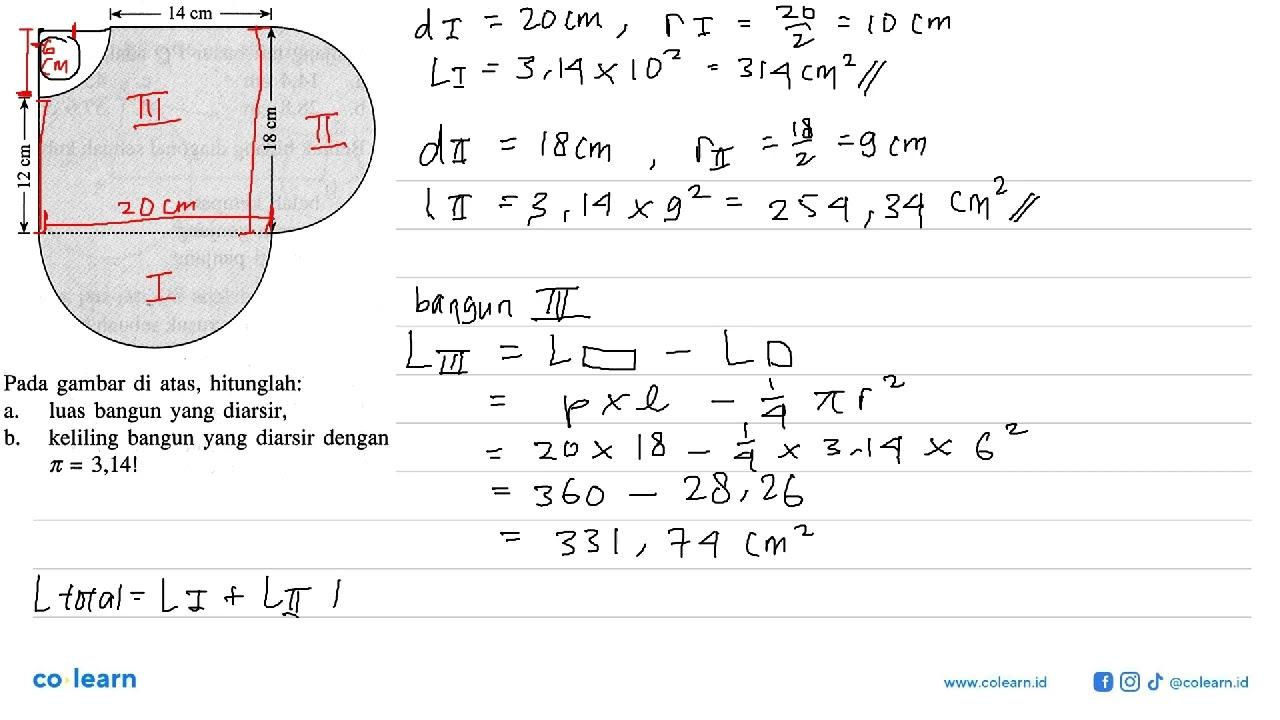 14 cm
6
cm
III
18 cm
II
12 cm
20 cm
I
Pada gambar di atas, hitunglah:
a. luas bangun yang diarsir,
b. keliling bangun yang diarsir dengan
π = 3,14!
dI = 20 cm, rI = 20/2 = 10 cm
LI = 3,14 × 10² = 314 cm² //
dII = 18 cm, rII = 18/2 = 9 cm
LII = 3,14 × 9² = 254,34 cm² //
bangun III
LIII = L▭ - L
= p × l - 1/4 πr²
= 20 × 18 - 1/4 × 3,14 × 6²
= 360 - 28,26
= 331,74 cm²
L total = LI + LII
co learn
www.colearn.id
@colearn.id